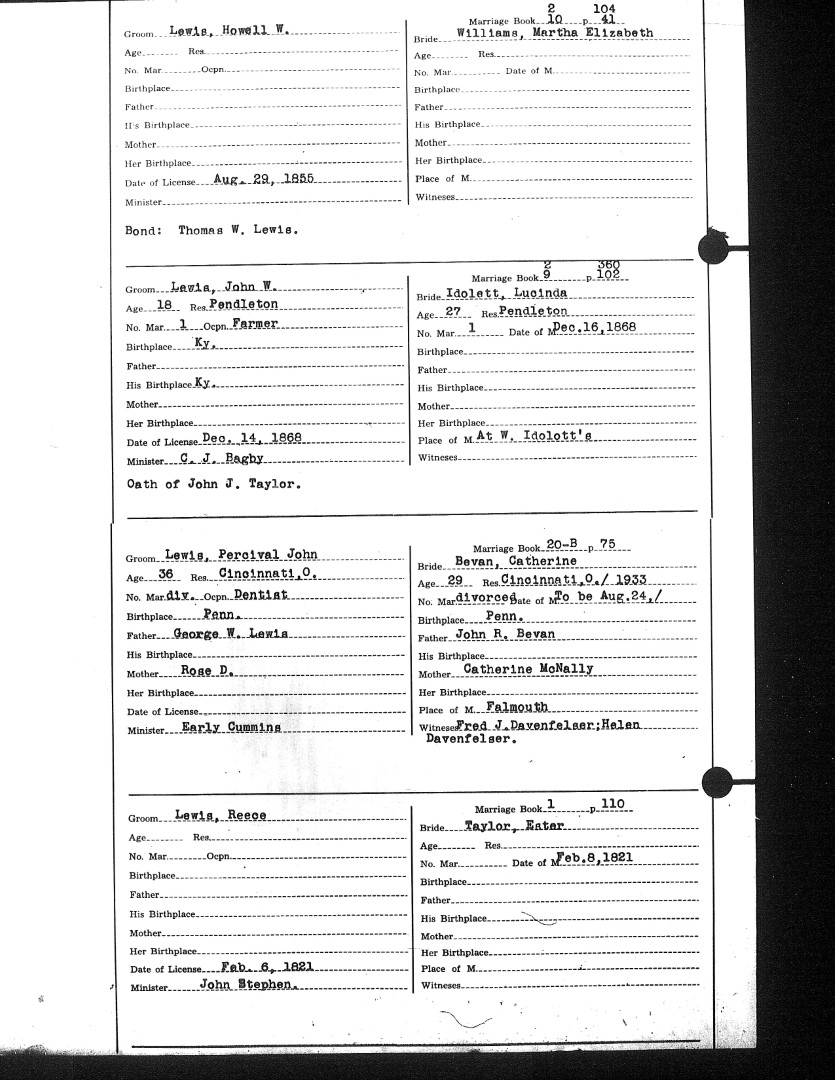 2 104
Marriage Book 10 p. 41
Groom Lewis, Howell W.
Age Res.
No. Mar. Ocpn.
Birthplace
Father
His Birthplace
Mother
Her Birthplace
Date of License Aug. 29, 1855
Minister
Bride Williams, Martha Elizabeth
Age Res.
No. Mar. Date of M.
Birthplace
Father
His Birthplace
Mother
Her Birthplace
Place of M.
Witneses
Bond: Thomas W. Lewis.
2 360
Marriage Book 9 p. 102
Groom Lewis, John W.
Age 18 Res. Pendleton
No. Mar. 1 Ocpn. Farmer
Birthplace Ky.
Father
His Birthplace Ky.
Mother
Her Birthplace
Date of License Dec. 14, 1868
Minister C. J. Bagby
Bride Idolett, Lucinda
Age 27 Res. Pendleton
No. Mar. 1 Date of M. Dec.16,1868
Birthplace
Father
His Birthplace
Mother
Her Birthplace
Place of M. At W. Idolott's
Witneses
Oath of John J. Taylor.
Marriage Book 20-B p. 75
Groom Lewis, Percival John
Age 36 Res. Cincinnati,O.
No. Mar. div. Ocpn. Dentist
Birthplace Penn.
Father George W. Lewis
His Birthplace
Mother Rose D.
Her Birthplace
Date of License
Minister Early Cummins
Bride Bevan, Catherine
Age 29 Res. Cincinnati,O./ 1933
No. Mar. divorced Date of M. To be Aug.24,/
Birthplace Penn.
Father John R. Bevan
His Birthplace
Mother Catherine McNally
Her Birthplace
Place of M. Falmouth
Witneses Fred J.Davenfelser;Helen
Davenfelser.
Marriage Book 1 p. 110
Groom Lewis, Reece
Age Res.
No. Mar. Ocpn.
Birthplace
Father
His Birthplace
Mother
Her Birthplace
Date of License Feb. 6, 1821
Minister John Stephen.
Bride Taylor, Ester
Age Res.
No. Mar. Date of M. Feb.8,1821
Birthplace
Father
His Birthplace
Mother
Her Birthplace
Place of M.
Witneses